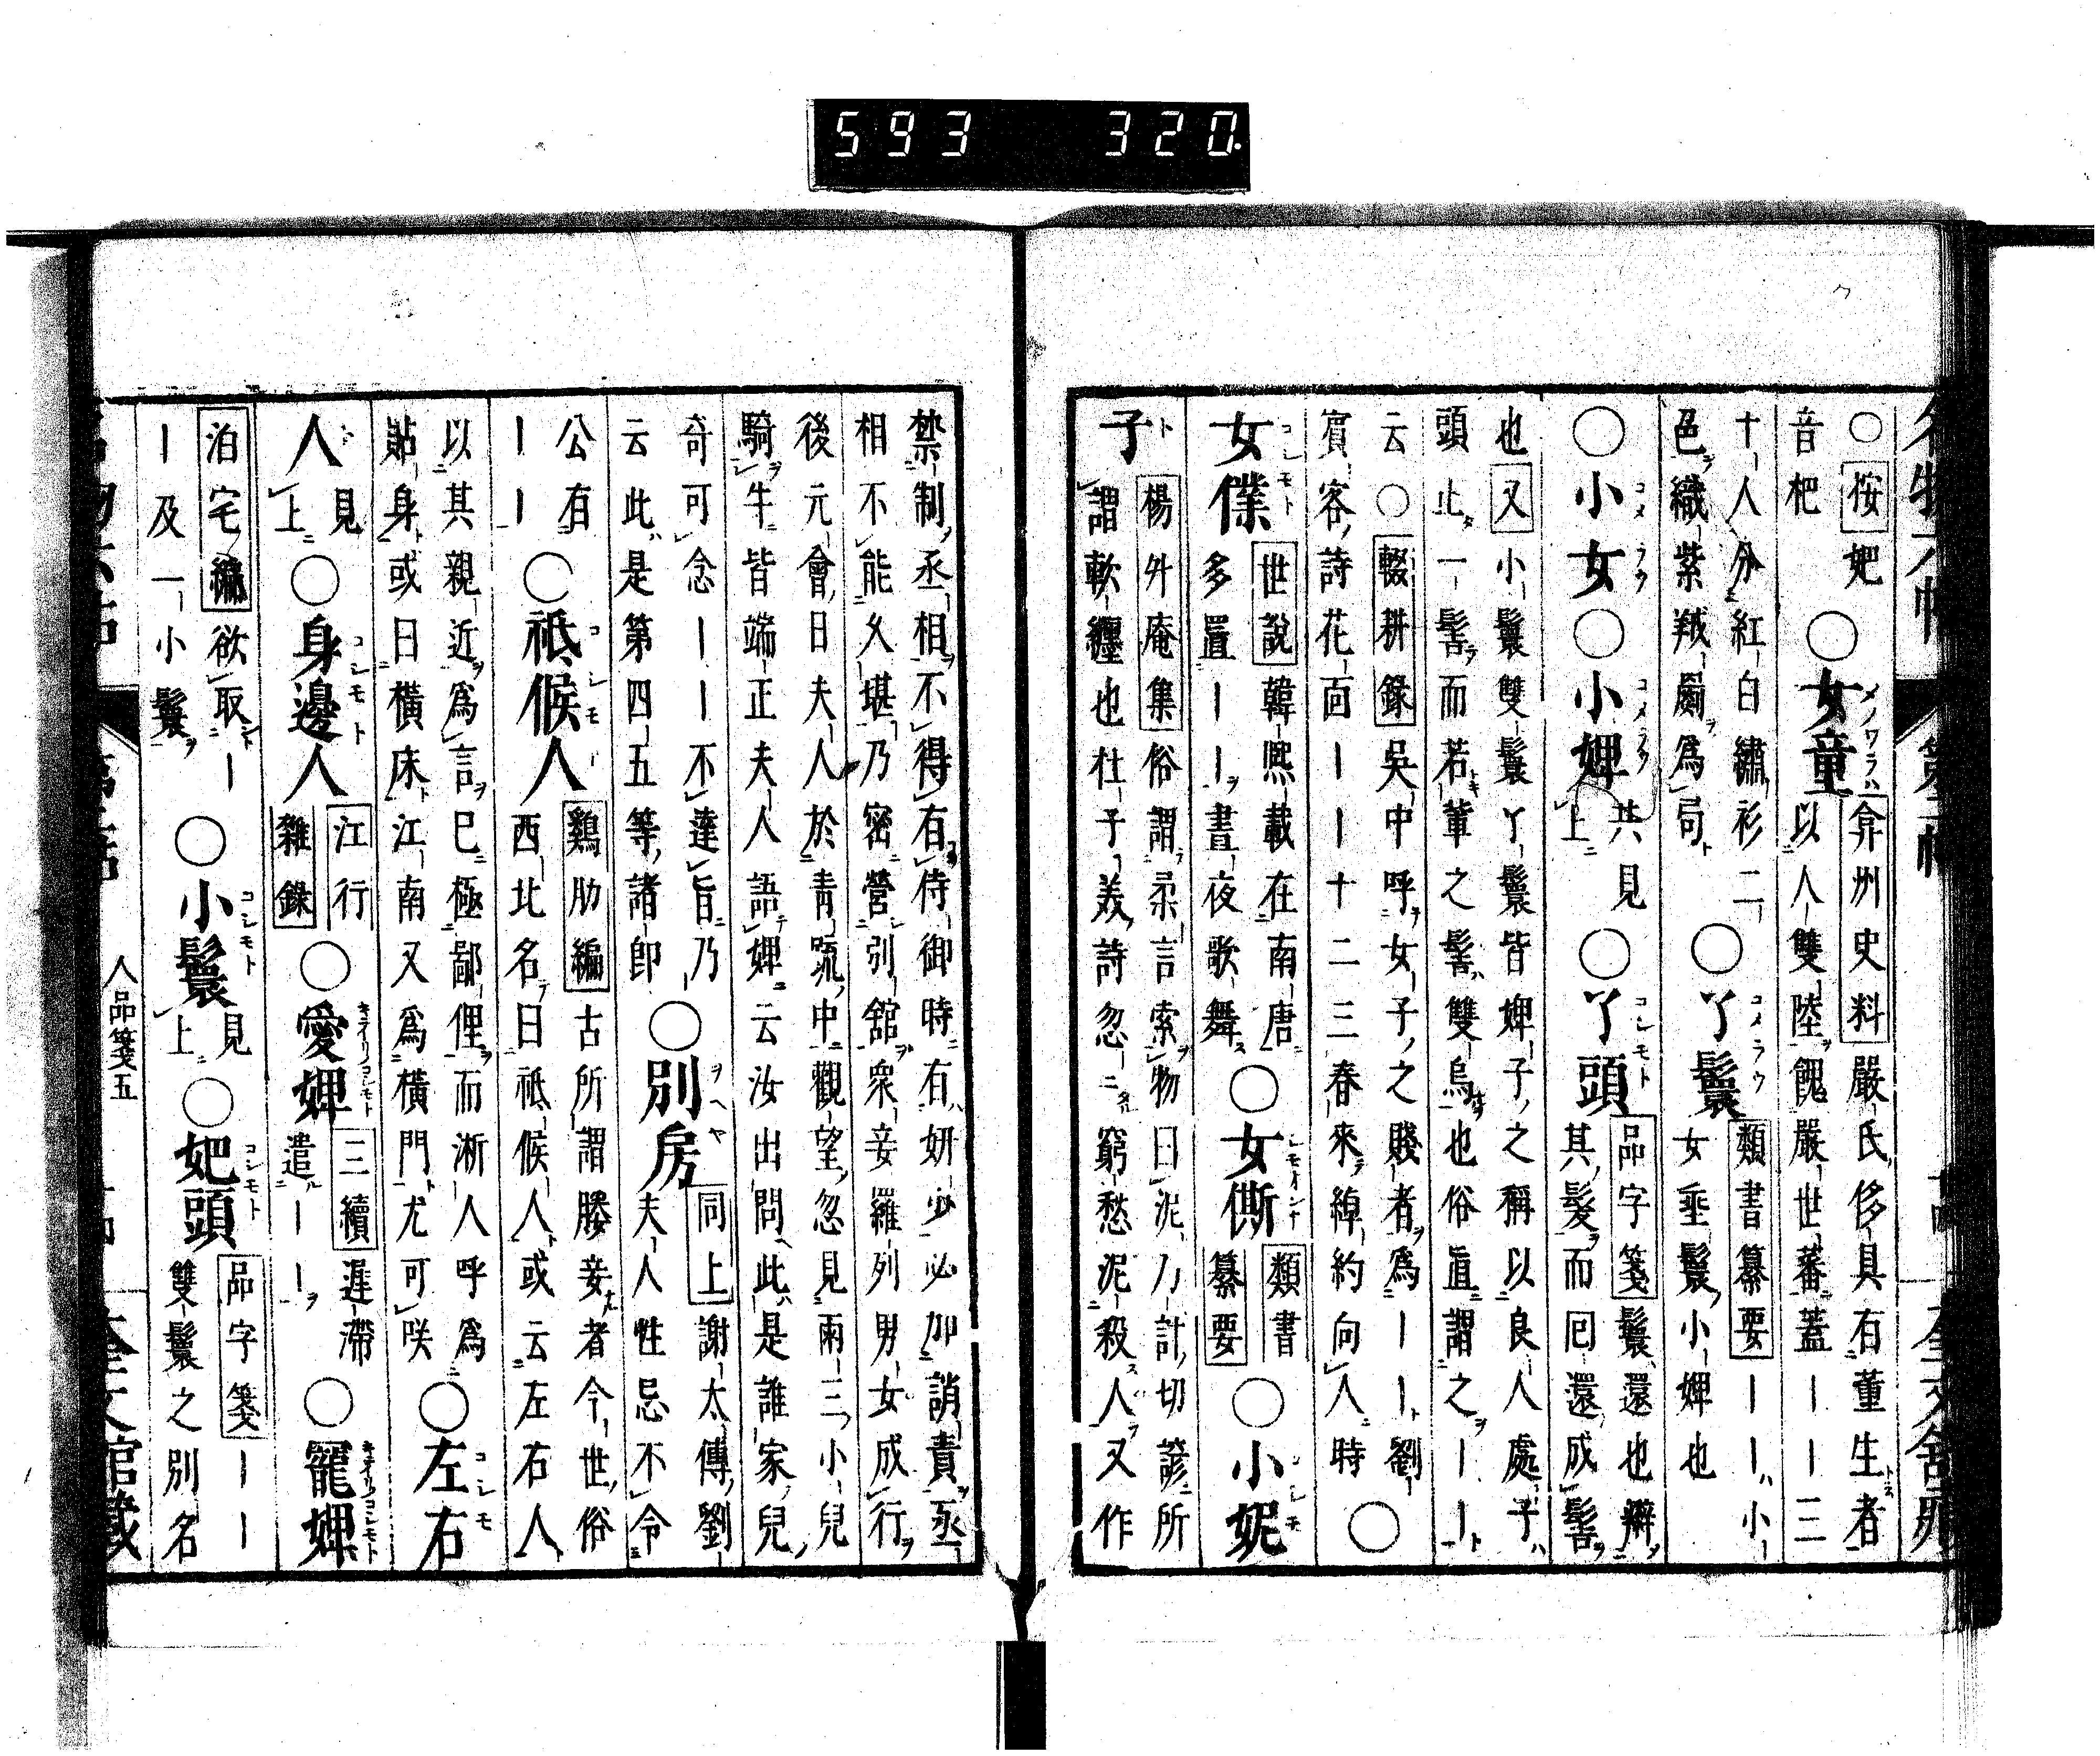 593 320
○按妑
音杷
○女童
弇州史料嚴氏侈具有董生者
以人雙陸餽嚴世蕃蓋｜｜三
十人分紅白繡衫二
色織紫羢罽爲局
○丫鬟
類書纂要｜｜小
女垂鬟小婢也
○小女○小婢
共見
上
○丫頭
品字箋鬟還也辮
其髮而回還成髻
也又小鬟雙鬟丫鬟皆婢子之稱以良人處子
頭止一髻而若輩之髻雙烏也俗直謂之｜｜
云○輟耕録吳中呼女子之賤者爲｜｜劉
賓客詩花面｜｜十二三春來綽約向人時
○
女僕
世說韓熙載在南唐
多置｜｜晝夜歌舞
○女傂
類書
纂要
○小妮
子
楊升庵集俗謂柔言索物曰泥乃計切諺所
謂軟纏也杜子美詩忽忽窮愁泥殺人又作
禁制丞相不得有侍御時有妍少必加誚責丞
相不能久堪乃密營別舘衆妾羅列男女成行
後元會日夫人於青疏中觀望忽見兩三小兒
騎牛皆端正夫人語婢云汝出問此是誰家兒
奇可念｜｜不達旨乃
云此是第四五等諸郎
○別房
同上謝太傳劉
夫人性忌不令
公有
｜｜
○祗候人
鷄肋編古所謂媵妾者今世俗
西北名曰祗候人或云左右人
以其親近爲言已極鄙俚而淅人呼爲
貼身或曰橫床江南又爲橫門尤可咲
○左右
人
見
上
○身邊人
江行
雜錄
○愛婢
三續遲滯
遣｜｜
○寵婢
泊宅編欲取｜
｜及一小鬟
○小鬟
見
上
○妑頭
品字箋｜｜
雙鬟之別名
人品箋五